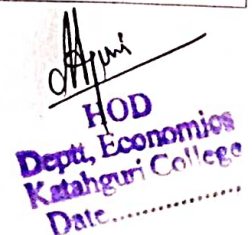 HOD
Deptt, Economics
Katahguri College
Date...............